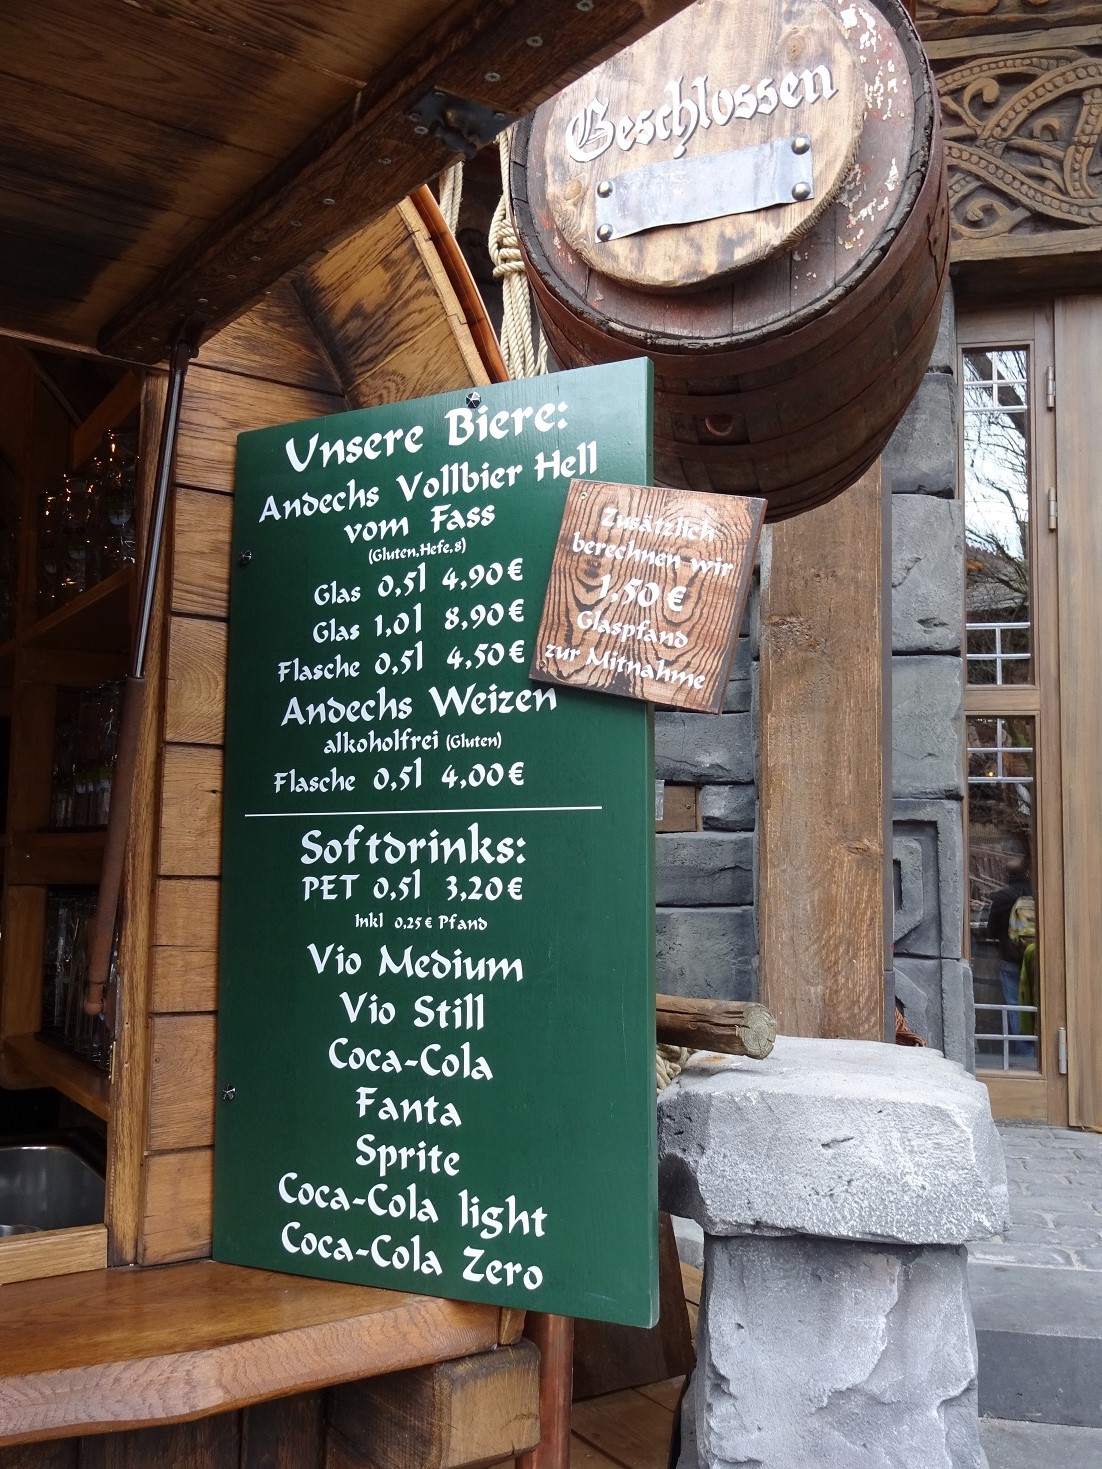 Geschlossen
Unsere Biere:
Andechs Vollbier Hell
vom Fass
(Gluten,Hefe,8)
Glas 0,5l 4,90€
Glas 1,0l 8,90€
Flasche 0,5l 4,50€
Andechs Weizen
alkoholfrei (Gluten)
Flasche 0,5l 4,00€
Zusätzlich
berechnen wir
1,50 €
Glaspfand
zur Mitnahme
Softdrinks:
PET 0,5l 3,20€
Inkl 0,25€ Pfand
Vio Medium
Vio Still
Coca-Cola
Fanta
Sprite
Coca-Cola light
Coca-Cola Zero